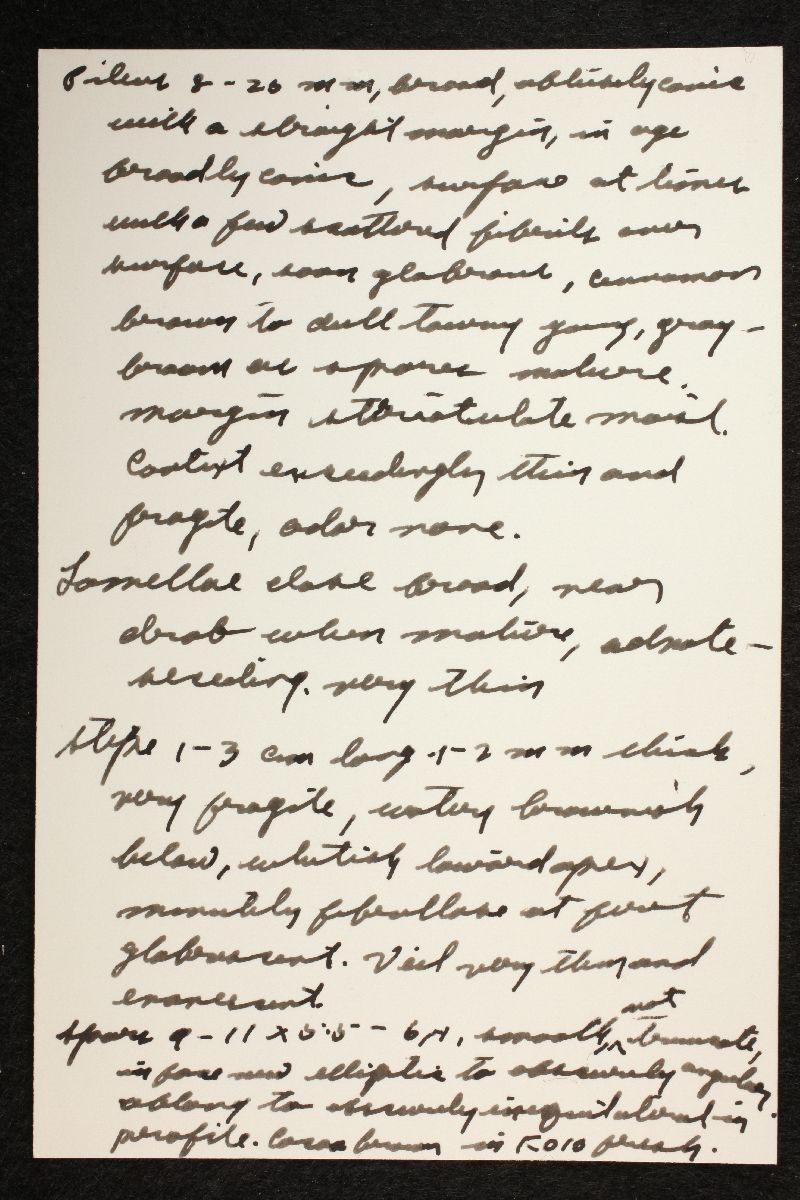 Pileus 8 - 20 mm, broad, obtusely conic
with a straight margin, in age
broadly conic, surface at times
with a few scattered fibrils over
surface, soon glabrous, cinnamon
brown to dull tawny young, gray-
brown as spores mature.
margin striatulate moist.
Context exceedingly thin and
fragile, odor none.
Lamellae close broad, near
drab when mature, adnate-
seceding. very thin
stipe 1-3 cm long .1-2 mm thick,
very fragile, watery brownish
below, whitish toward apex,
minutely fibrillose at first
glabrescent. Veil very thin and
evanescent.
not
spores 9 - 11 x 5.5 - 6 µ, smooth, truncate,
in face view elliptic to obscurely angular,
oblong to obscurely inequilateral in
profile. Cocoa brown in KOH fresh.